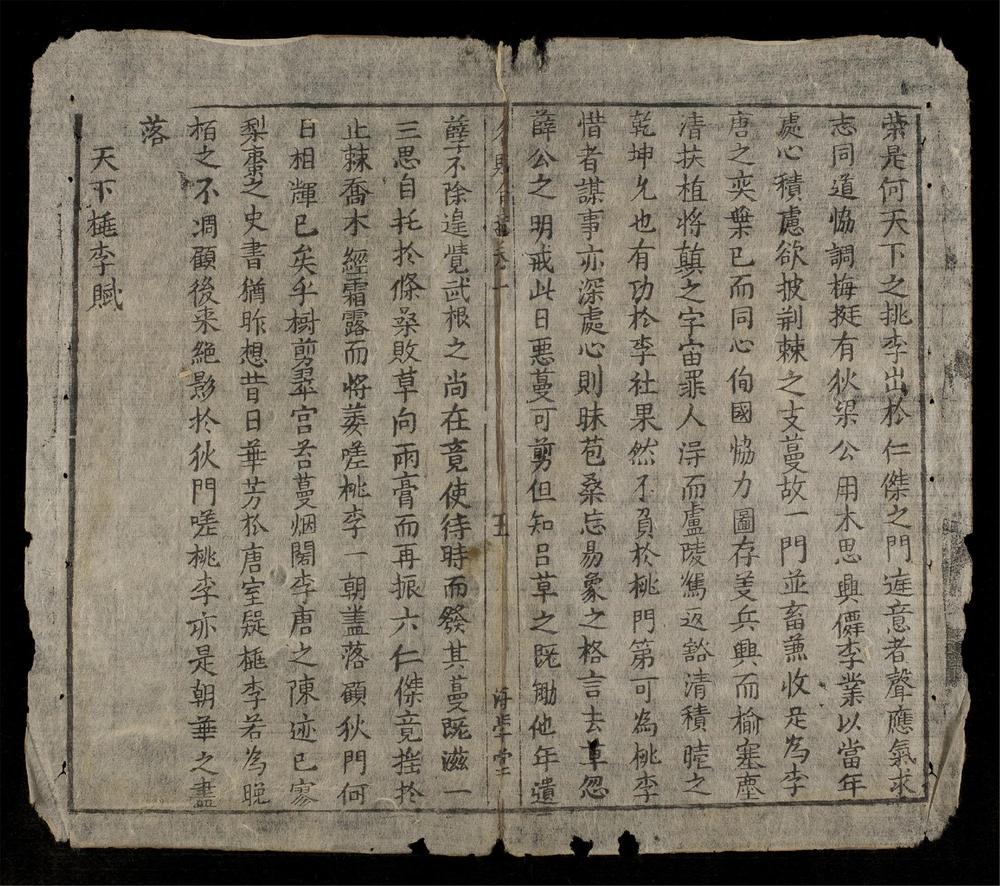 荣是何天下之挑李出扵仁傑之門遅意者聲應氣求
志同道恊調梅挺有狄梁公用木思興儛李業以當年
處心積慮欲披荆棘之支蔓故一門並畜兼收足為李
唐之奕葉已而同心佝國恊力圖存美兵興而榆塞塵
清扶植将顛之字宙罪人淂而盧陵駕返谿清積曀之
乾坤允也有功扵李社果然不負扵桃門第可為桃李
惜者謀事亦深處心則昧苞桑忘易象之格言去草忽
薛公之明戒此日悪蔓可剪但知吕草之既勈他年遺
五
海學堂
孽不除遑覺武根之尚在竟使待時而發其蔓既滋一
三思自托扵條桑敗草向雨膏而再振六仁傑竟摧扵
止棘喬木經霜露而将萎嗟桃李一朝盖落顧狄門何
日相輝已矣乎樹剪翠宫苔蔓烟閣李唐之陳迹已寥
梨棗之史書猶昨想昔日華芳扵唐室疑桃李若為晚
栢之不凋顧後来絶影扵狄門嗟桃李亦是朝華之盡
落
天下桃李賦